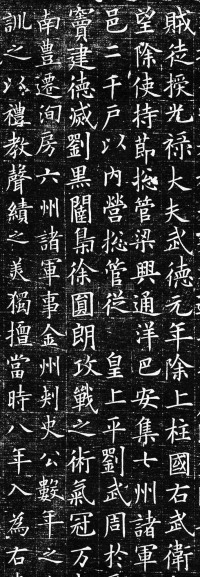 賊徒授光祿大夫武德元年除上柱國右武衛
望除使持節摠管梁興通洋巴安集七州諸軍
邑二千戶以內營摠管從 皇上平劉武周於
竇建德滅劉黑闥梟徐圓朗攻戰之術氣冠万
南豐遷洵房六州諸軍事金州刾史公數年之
訓之以禮教聲績之美獨擅當時八年入為右